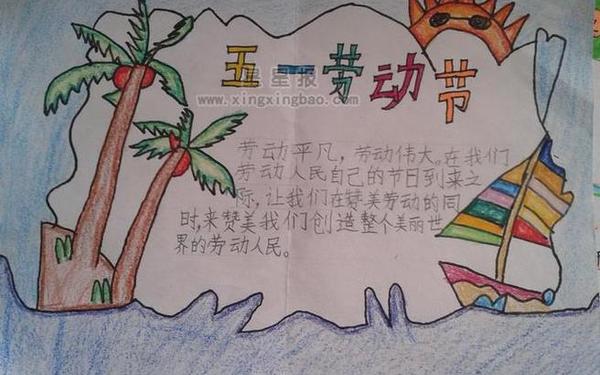 五一劳动节
星星报
www.xingxingbao.com
劳动平凡，劳动伟大。在我们
劳动人民自己的节日到来之
际，让我们在赞美劳动的同
时，来赞美我们创造整个美丽世
界的劳动人民。